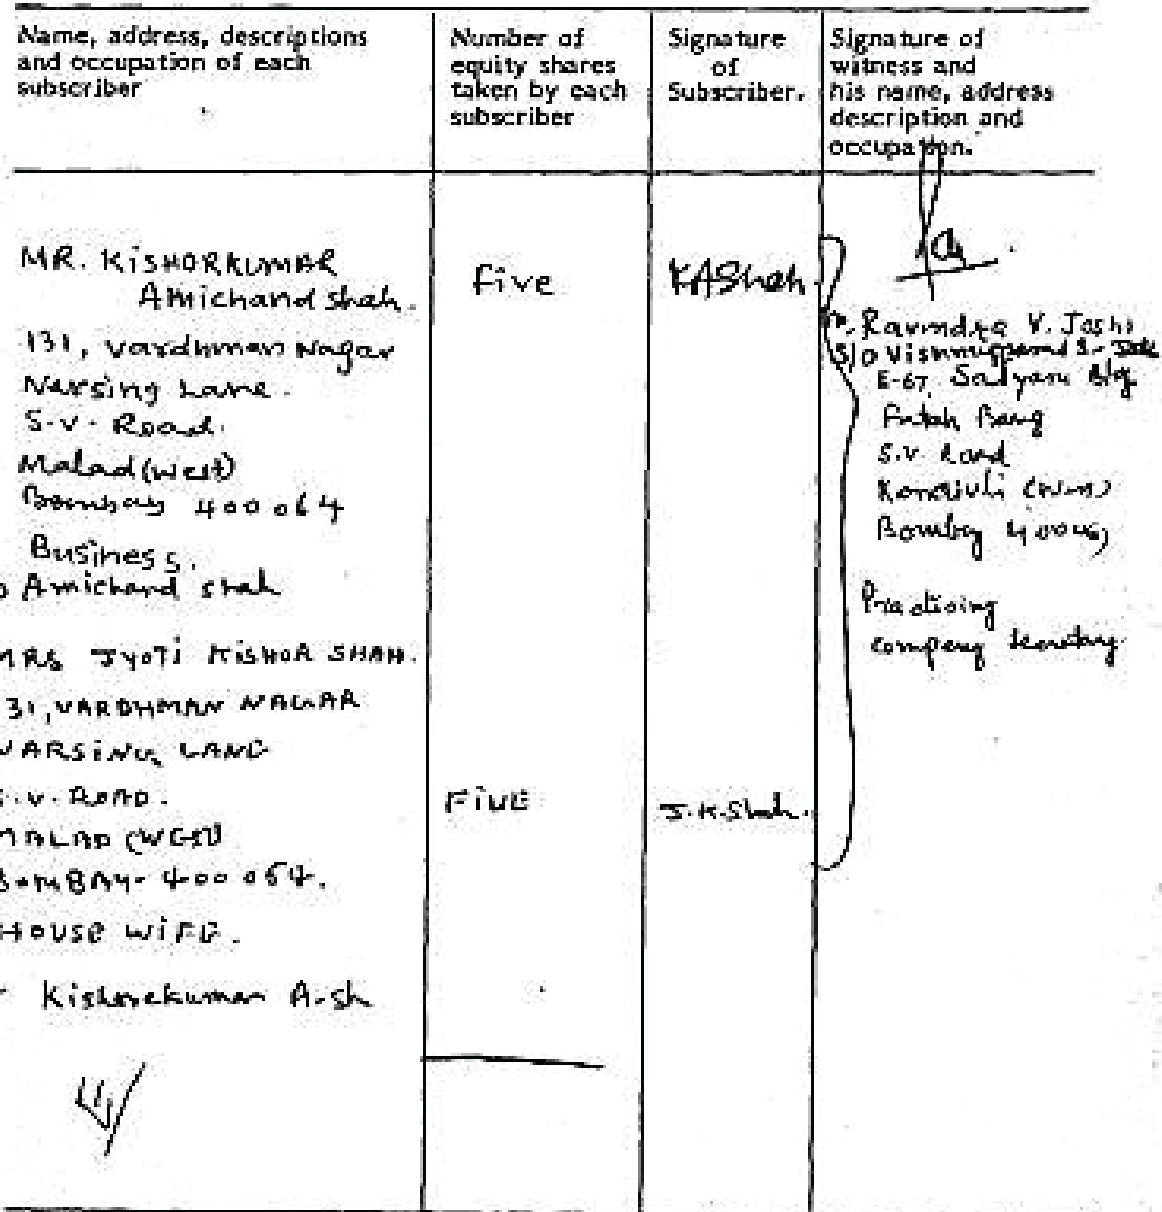 Name, address, descriptions
and occupation of each
subscriber
Number of
equity shares
taken by each
subscriber
Signature
of
Subscriber.
Signature of
witness and
his name, address
description and
occupation.
MR. KISHORKUMAR
Amichand shah.
131, Vardhman Nagar
Narsing Lane.
S.V. Road.
Malad (West)
Bombay 400064
Business.
Amichand shah
five
KAShah
Ravindra V. Joshi
S/O
E-67, Satyam Bldg
S.V. Road
Bombay
Practising
company secretary
MRS JYOTI KISHOR SHAH.
31, VARDHMAN NAGAR
NARSING LANE
S.V. ROAD.
MALAD (WEST)
BOMBAY- 400 064.
HOUSE WIFE.
Kishorekumar A. Sh
FIVE
J.K.Shah.